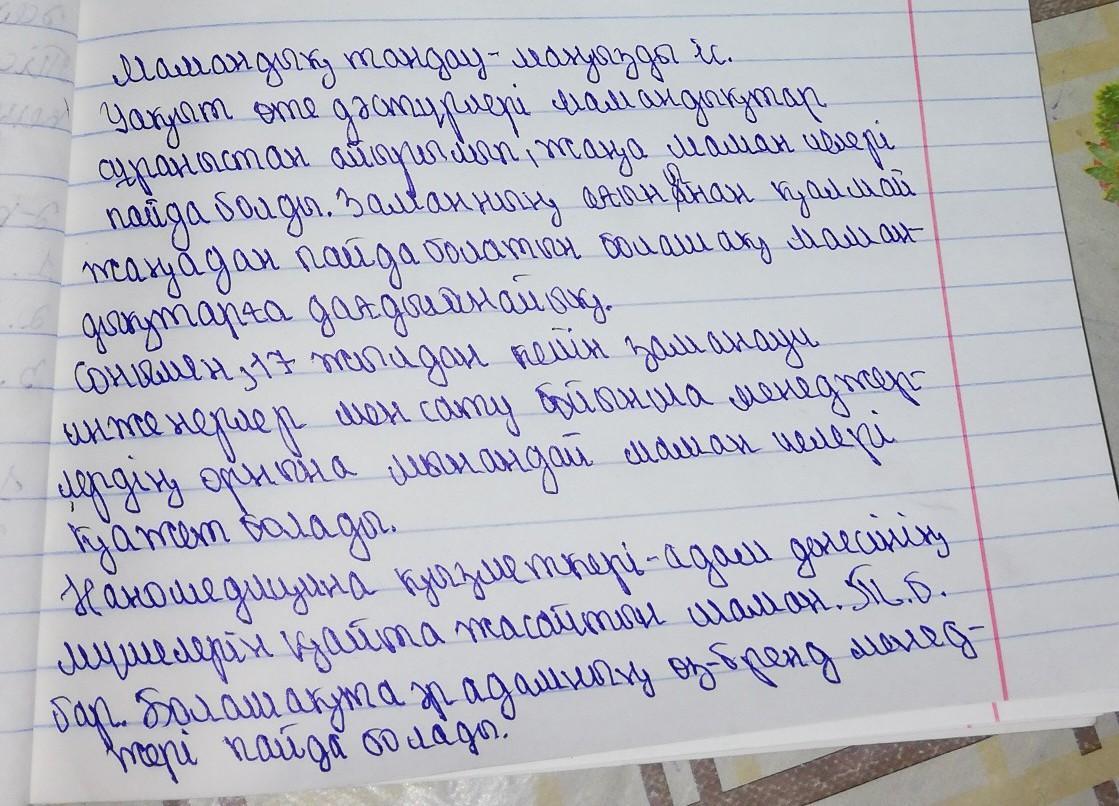 Мамандық таңдау - маңызды іс.
Уақыт өте дәстүрлері мамандықтар
сұраныстан айырылып, жаңа маман иелері
пайда болды. Заманның ағынынан қалмай
жаңадан пайда болатын болашақ маман-
дықтарға дағдыланайық.
Сонымен, 17 жылдан кейін заманауи
инженерлер мен сату бойынша менеджер-
лердің орнына мынандай маман иелері
қажет болады.
Наномедицина қызметкері - адам денесінің
мүшелерін қайта жасайтын маман. Т.б.
бар. Болашақта әр адамның өз-бренд менед-
жері пайда болады.